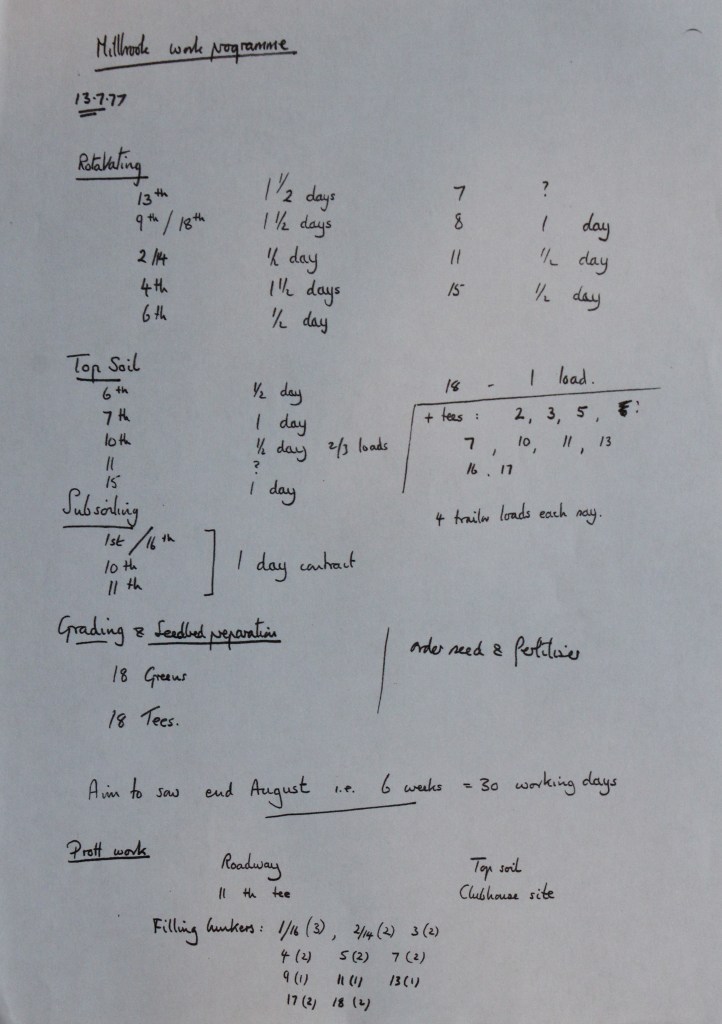 Millbrook work programme
13.7.77
Rotavating
13th 1 1/2 days 7 ?
9th / 18th 1 1/2 days 8 1 day
2/14 1/2 day 11 1/2 day
4th 1 1/2 days 15 1/2 day
6th 1/2 day
Top Soil
6th 1/2 day
7th 1 day
10th 1/2 day 2/3 loads
11 ?
15 1 day
18 - 1 load.
+ tees : 2, 3, 5,
7, 10, 11, 13
16. 17
4 trailer loads each say.
Subsoiling
1st/16th
10th
11th
1 day contract
Grading & Seedbed preparation
18 Greens
18 Tees.
order seed & fertilizer
Aim to sow end August i.e. 6 weeks = 30 working days
work
Roadway Top soil
11 th tee Clubhouse site
Filling bunkers : 1/16 (3), 2/14 (2) 3 (2)
4 (2) 5 (2) 7 (2)
9 (1) 11 (1) 13 (1)
17 (2) 18 (2)